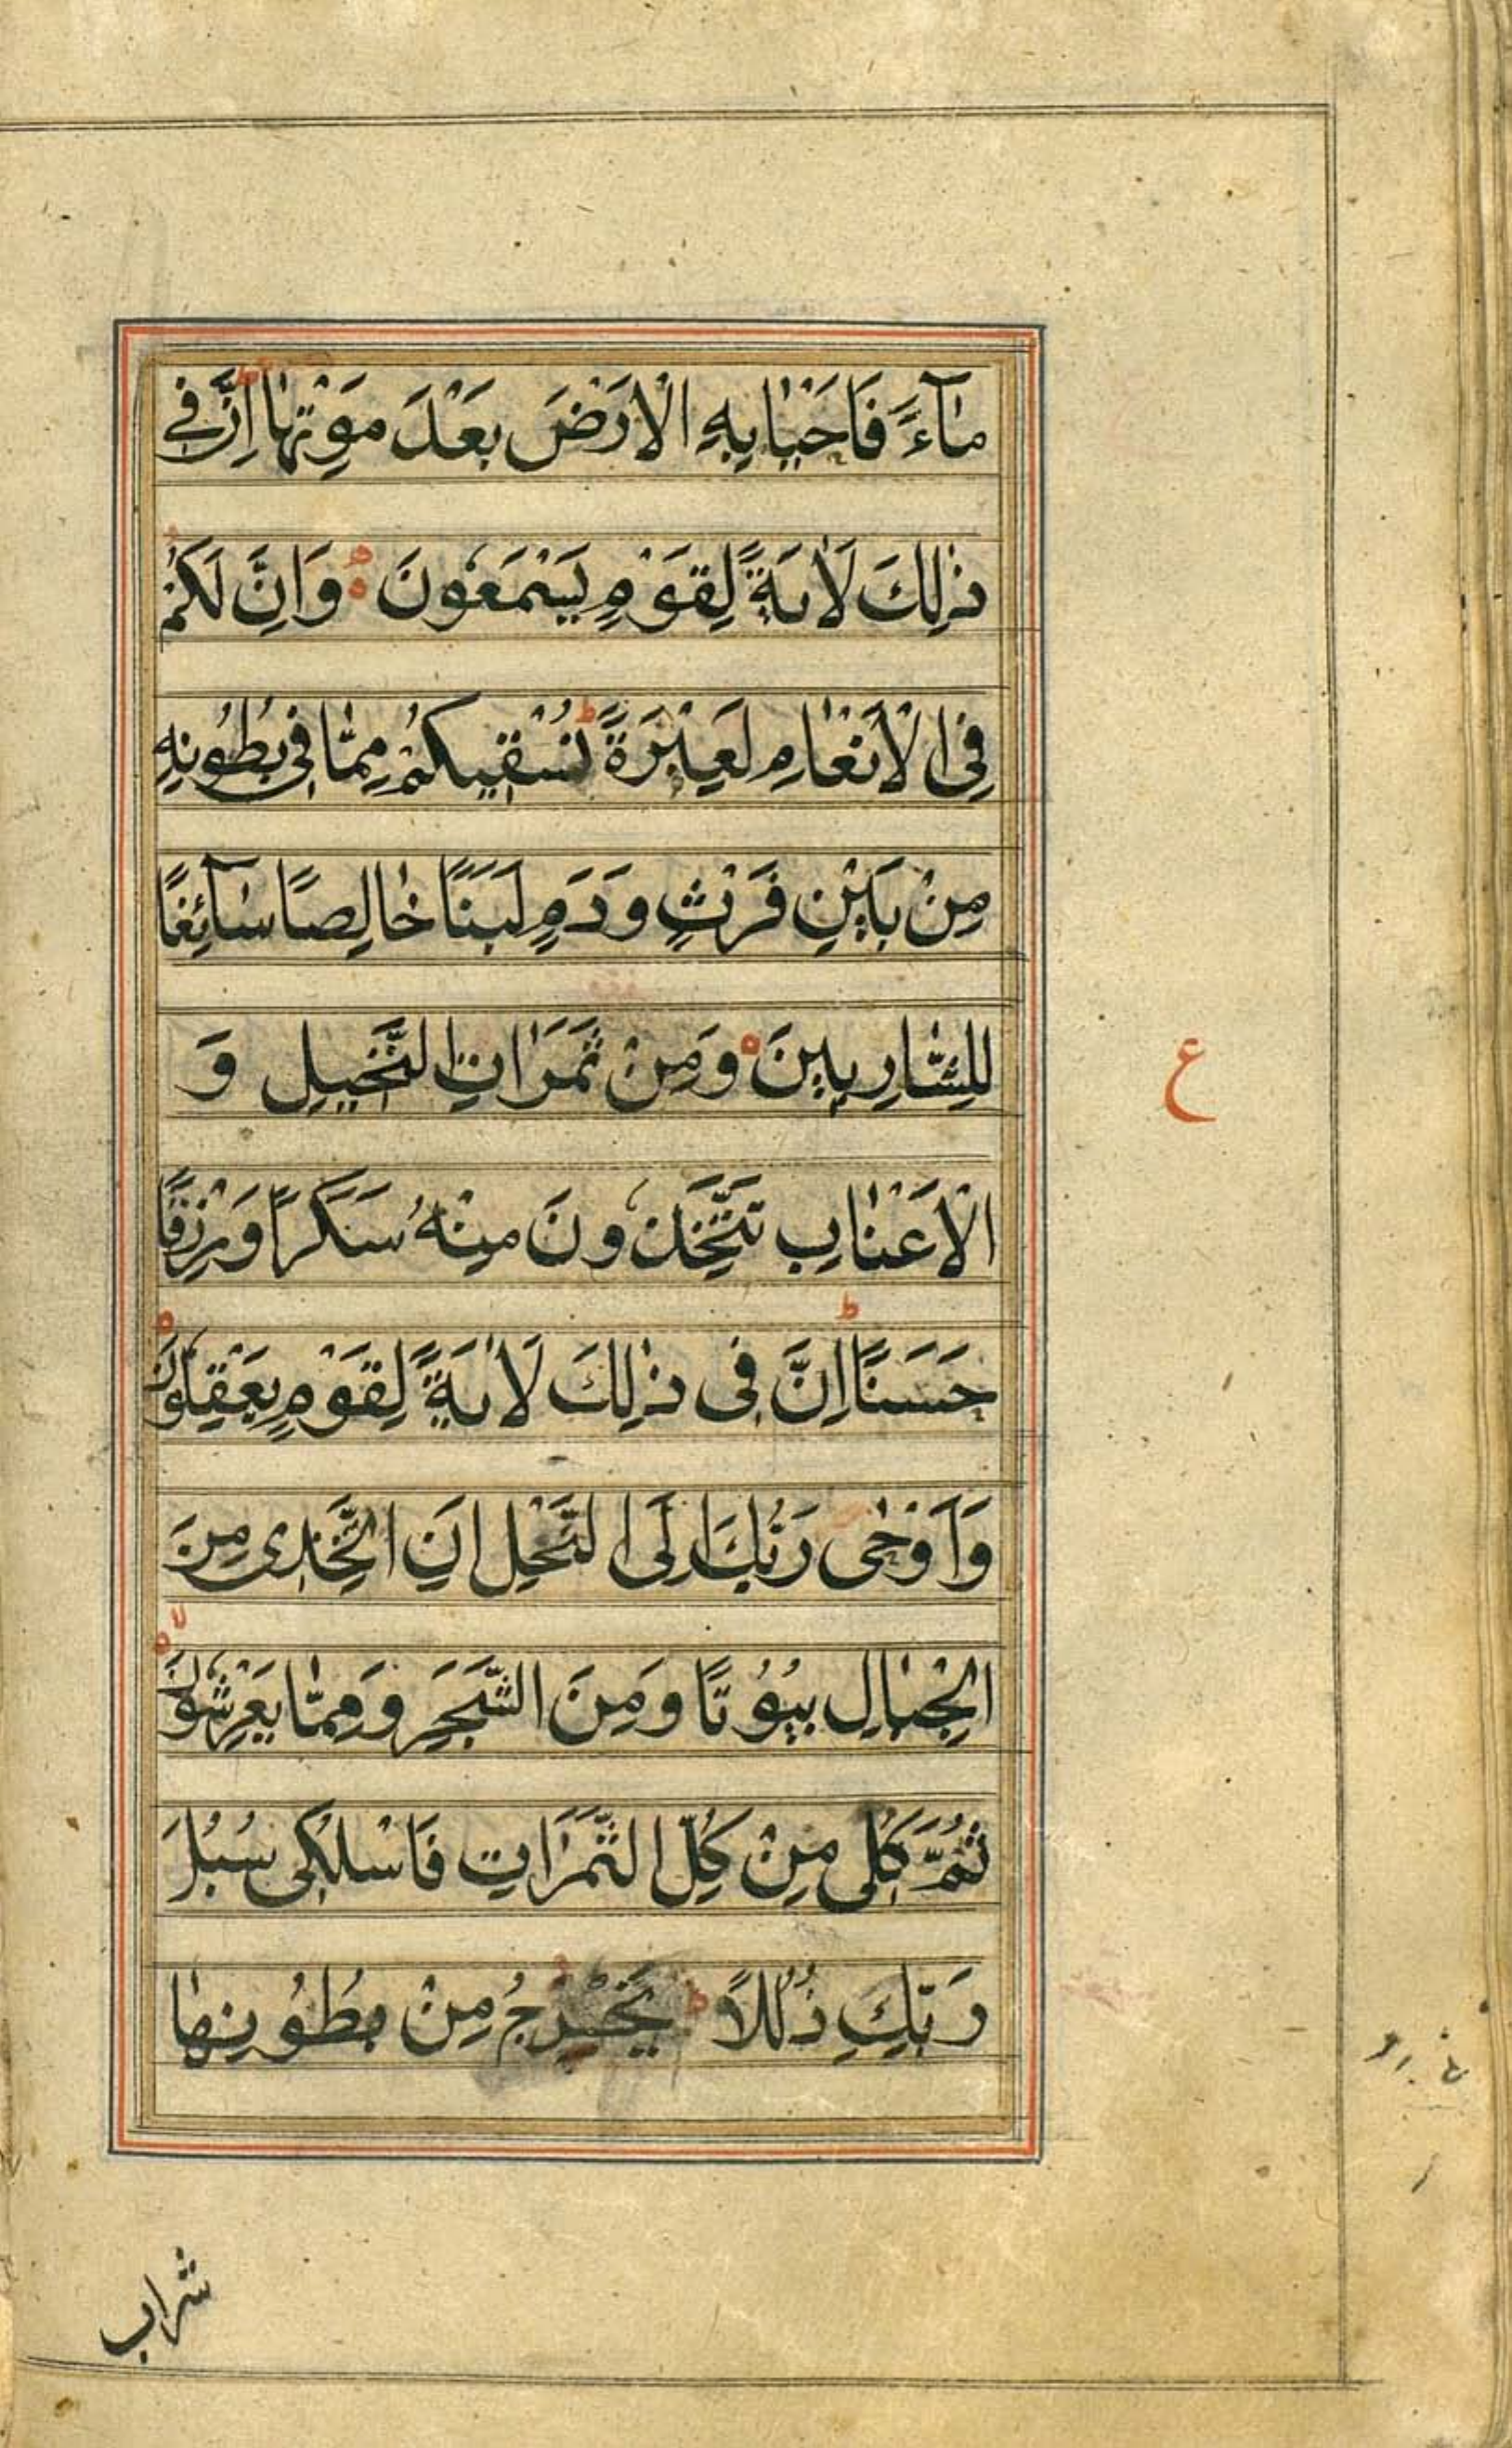 مَآءً فَاَحْيَا بِهِ الْاَرْضَ بَعْدَ مَوْتِهَا ط اِنَّ فِي
ذٰلِكَ لَاٰيَةً لِقَوْمٍ يَسْمَعُونَ وَاِنَّ لَكُمْ
فِي الْاَنْعَامِ لَعِبْرَةً ط نُسْقِيكُمْ مِمَّا فِي بُطُونِهِ
مِنْ بَيْنِ فَرْثٍ وَدَمٍ لَبَنًا خَالِصًا سَآئِغًا
لِلشَّارِبِينَ وَمِنْ ثَمَرَاتِ النَّخِيلِ وَ
ع
الْاَعْنَابِ تَتَّخِذُونَ مِنْهُ سَكَرًا وَرِزْقًا
حَسَنًا ط اِنَّ فِي ذٰلِكَ لَاٰيَةً لِقَوْمٍ يَعْقِلُونَ
وَاَوْحٰى رَبُّكَ اِلَى النَّحْلِ اَنِ اتَّخِذِى مِنَ
الْجِبَالِ بُيُوتًا وَمِنَ الشَّجَرِ وَمِمَّا يَعْرِشُونَ لا
ثُمَّ كُلِى مِنْ كُلِّ الثَّمَرَاتِ فَاسْلُكِى سُبُلَ
رَبِّكِ ذُلُلًا ط يَخْرُجُ مِنْ بُطُونِهَا
شراب